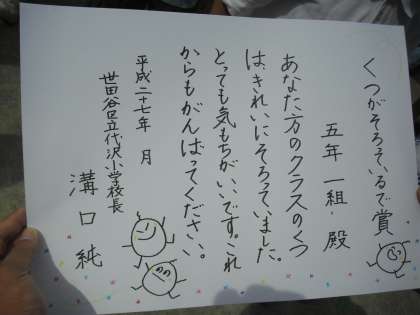 くつがそろているで賞
五年一組 殿
あなた方のクラスのくつ
は、きれいにそろっていました。
とっても気もちがいいです。これ
からもがんばってください。
平成二十七年 月
世田谷区立代沢小学校長
溝口純